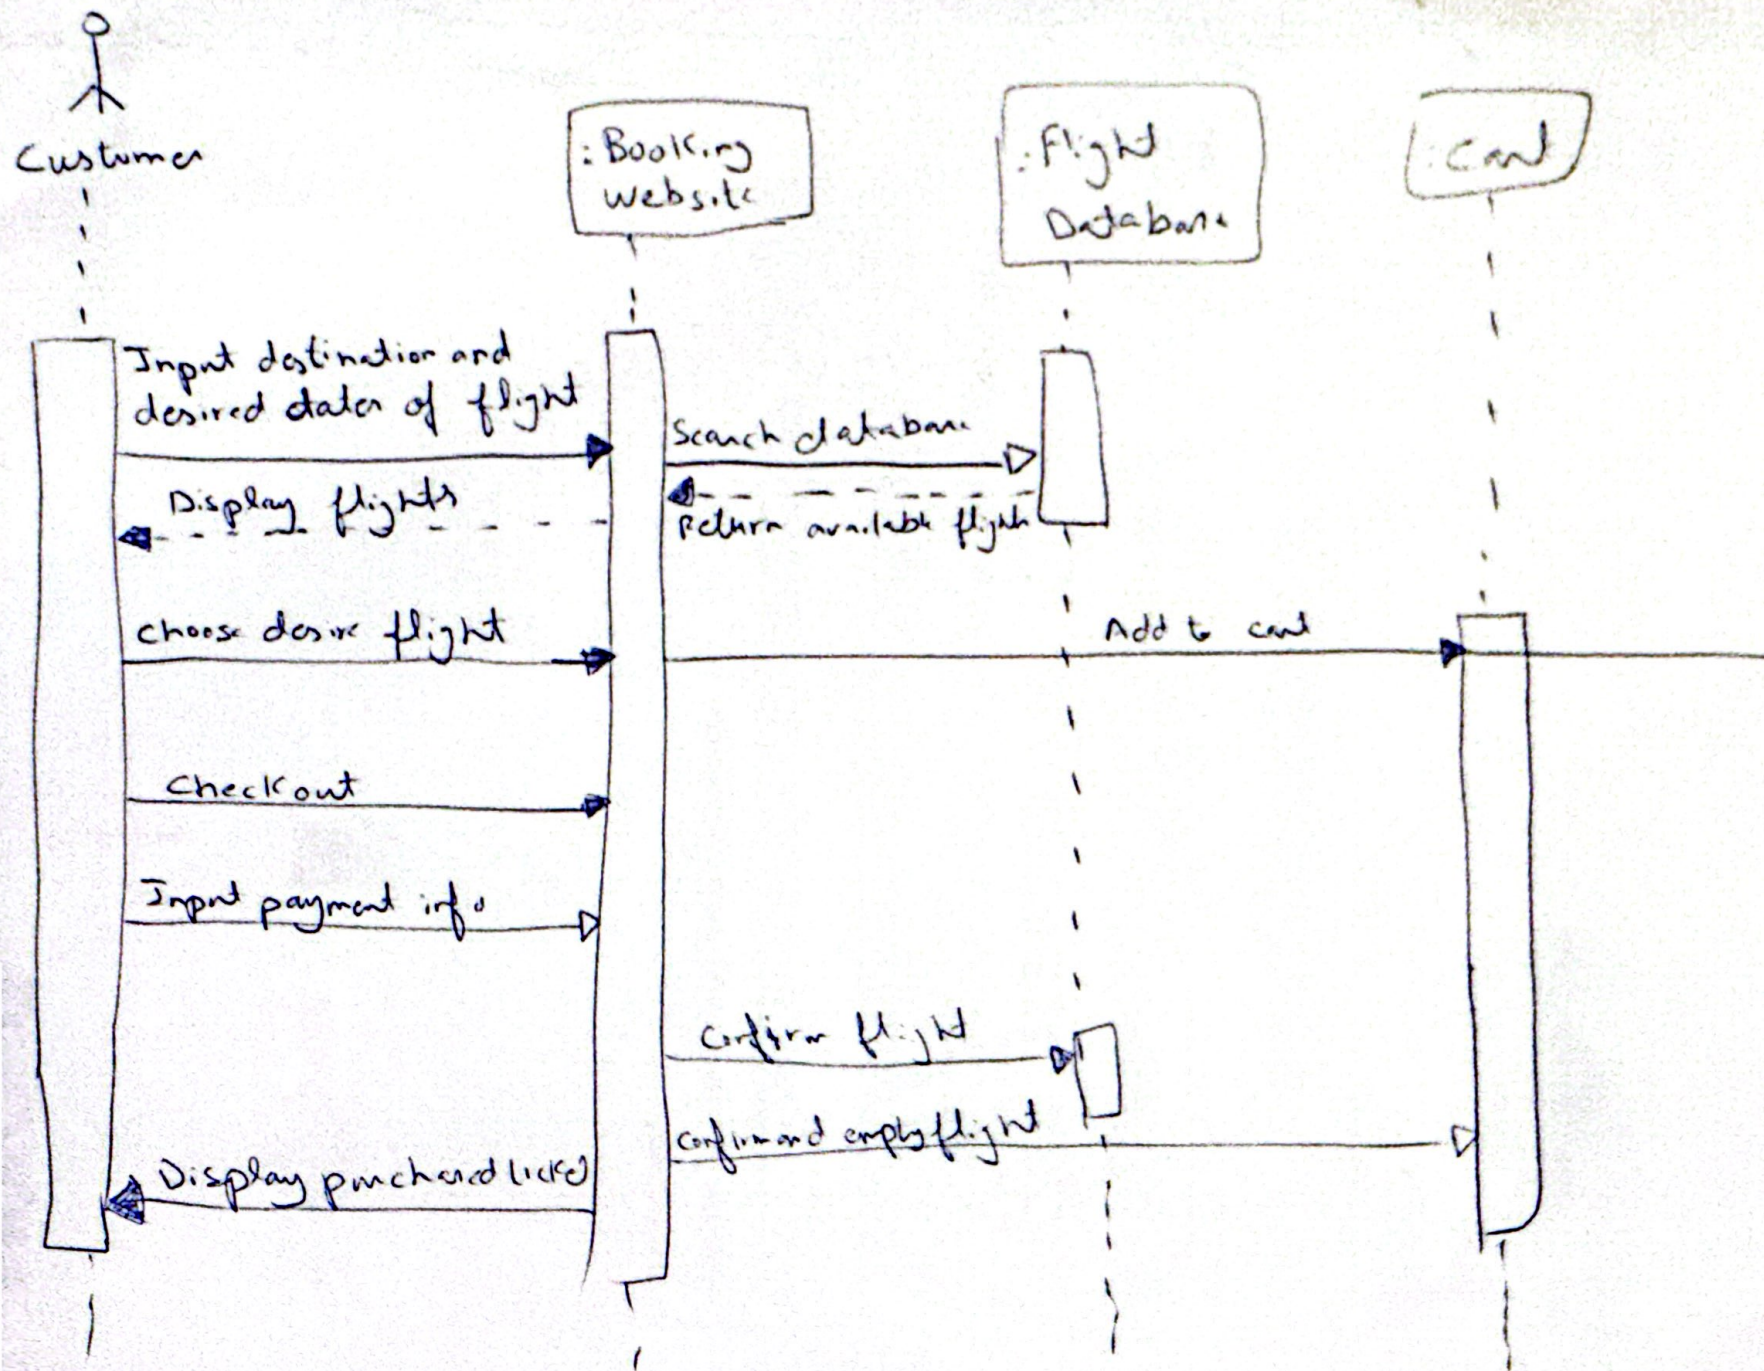 Customer
:Booking
Website
:Flight
Database
:Cart
Input destination and
desired dates of flight
Search database
Display flights
Return available flights
Choose desire flight
Add to cart
Checkout
Input payment info
Confirm flight
Confirm and empty flight
Display purchased ticket